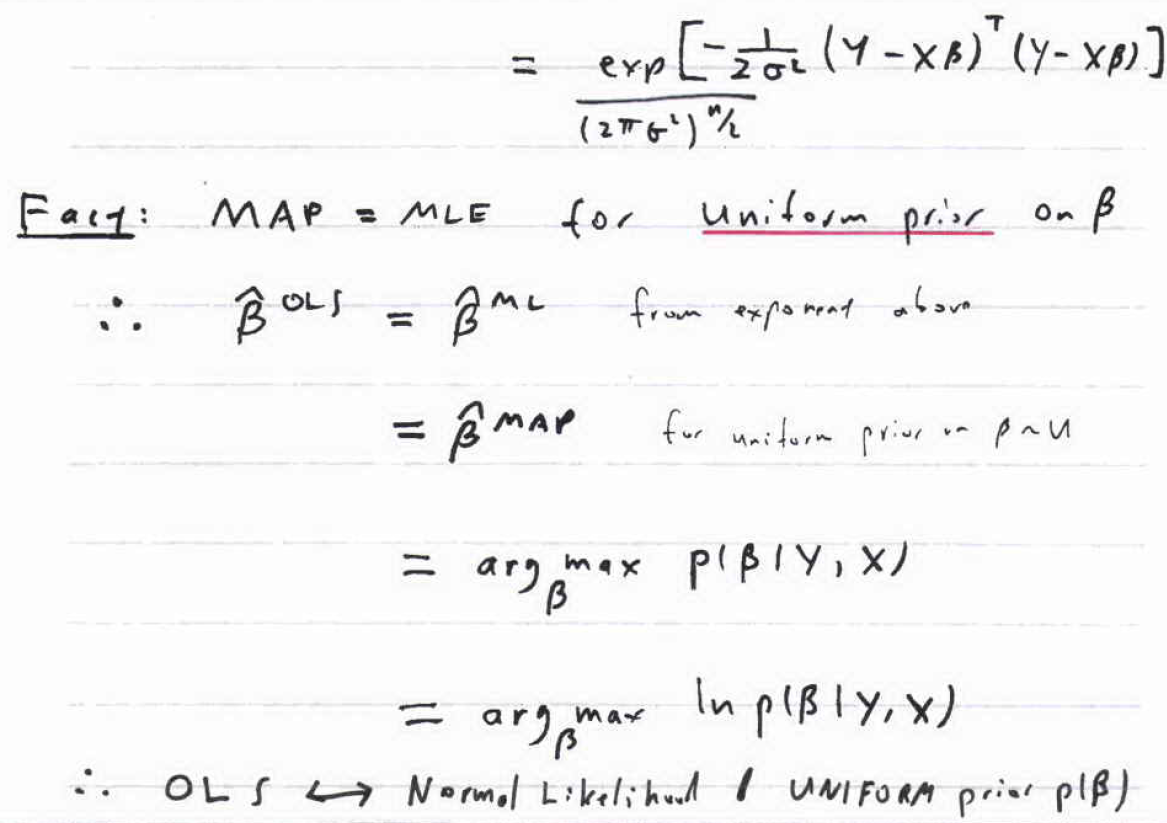 = exp[-1/2σ² (Y - Xβ)ᵀ (Y - Xβ)]
(2πσ²)^n/2
Fact: MAP = MLE for uniform prior on β
∴ β̂ OLS = β̂ ML from exponent above
= β̂ MAP for uniform prior on β ~ U
= arg max β p(β|Y, X)
= arg max β ln p(β|Y, X)
∴ OLS ↔ Normal Likelihood / UNIFORM prior p(β)